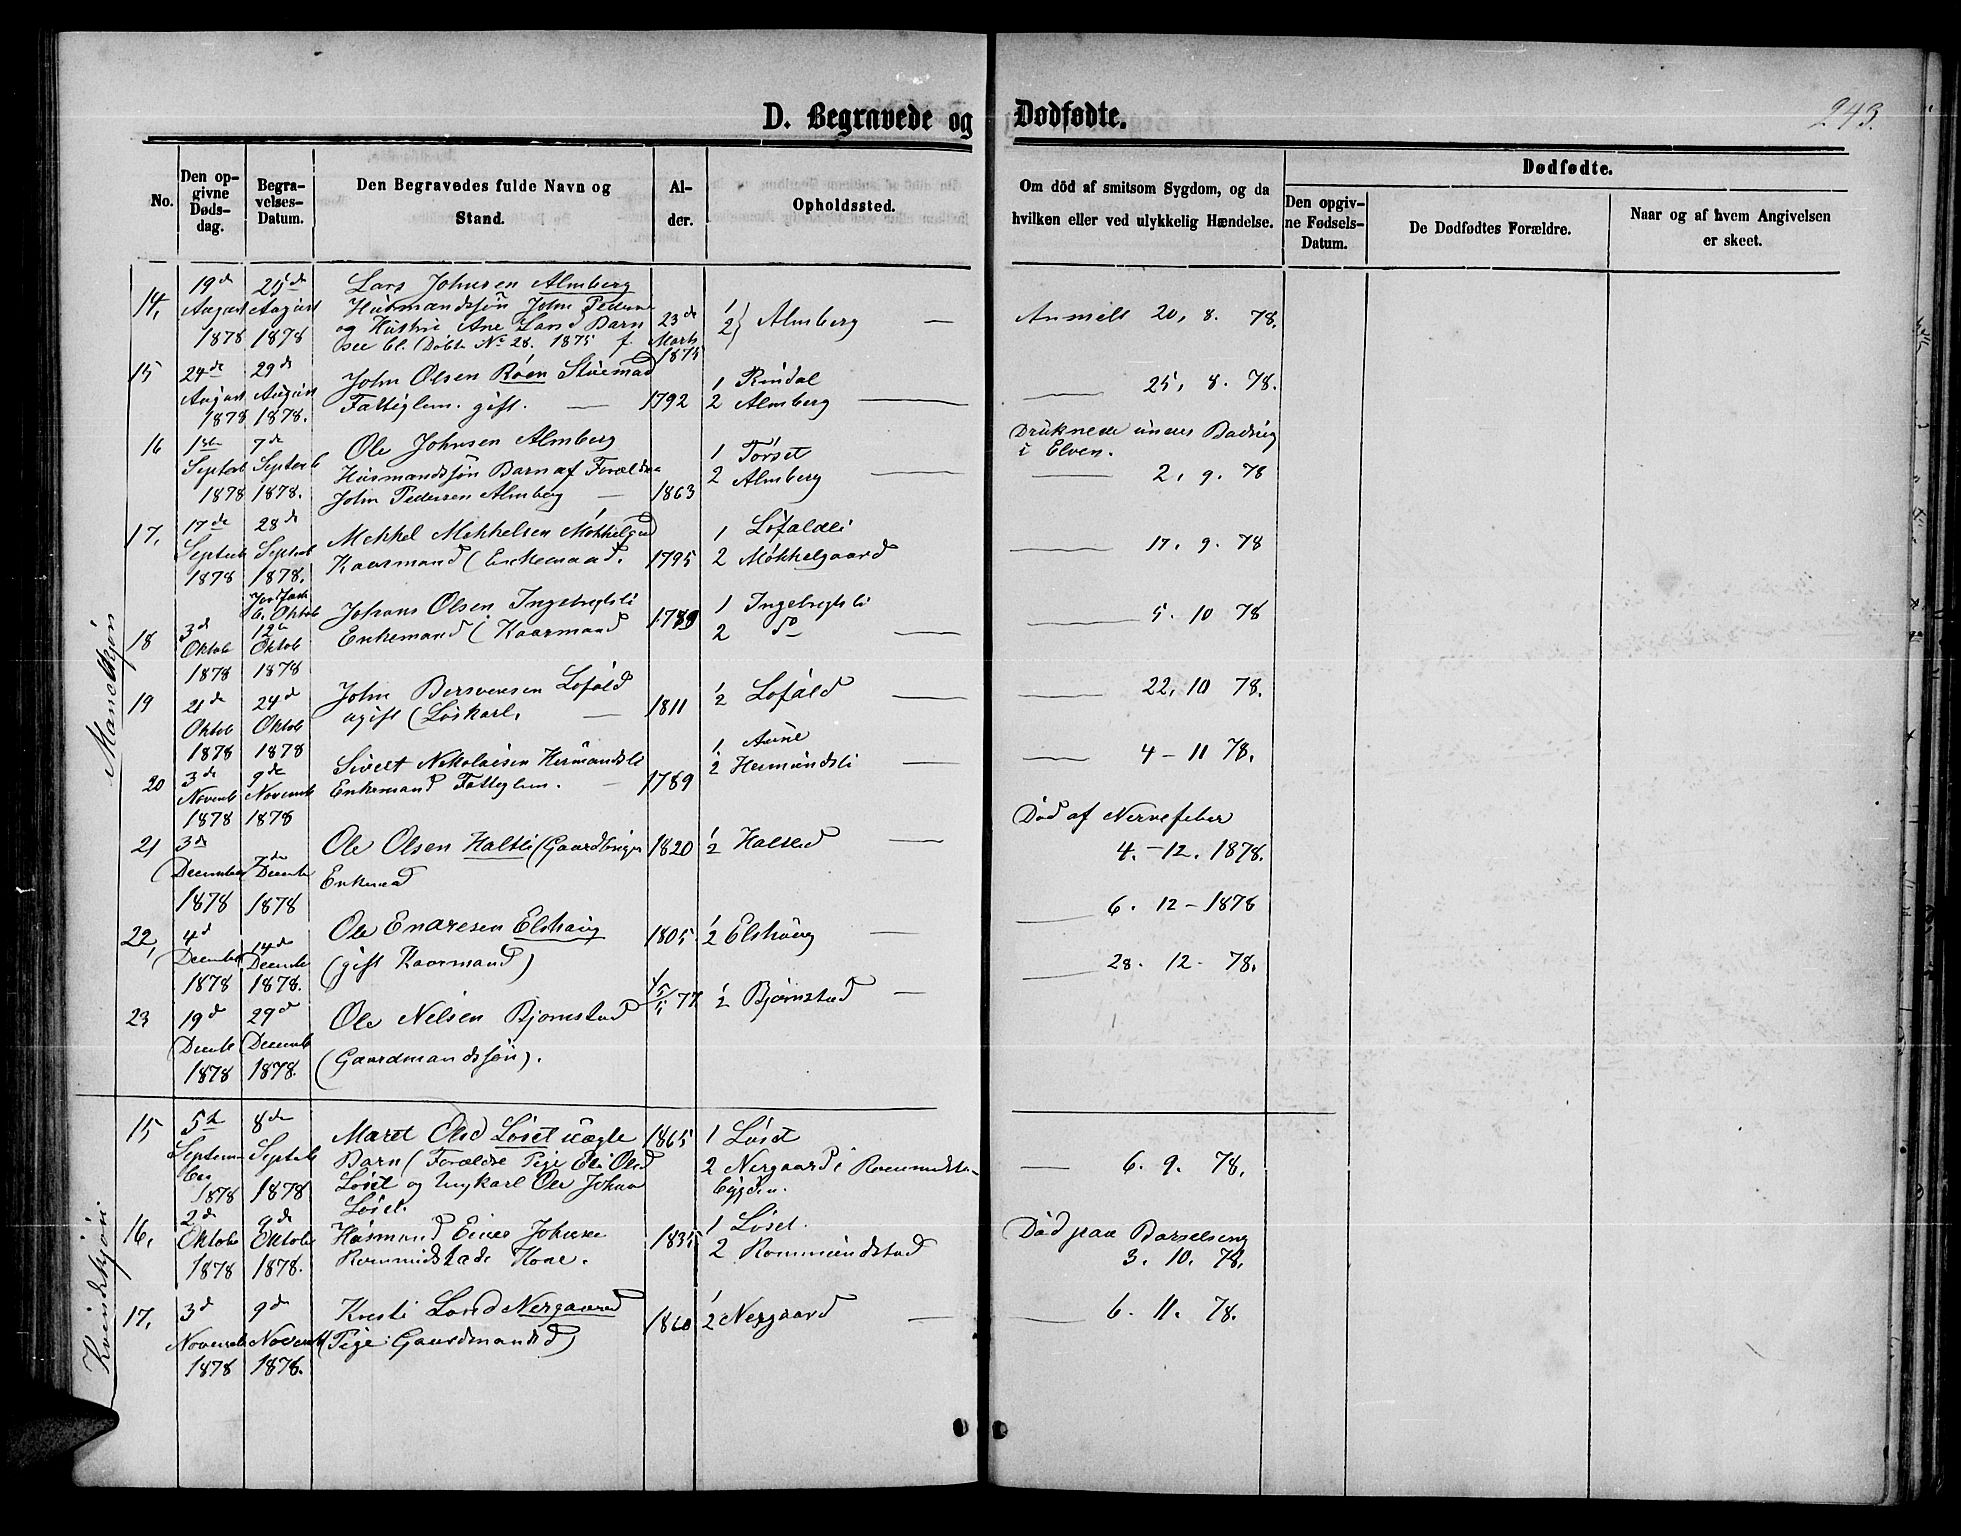 D. Begravede og Dødfødte.
243.
No.
Den op-
givne
Døds-
dag.
Begra-
velses-
Datum.
Den Begravedes fulde Navn og
Stand.
Al-
der.
Opholdssted.
Om död af smitsom Sygdom, og da
hvilken eller ved ulykkelig Hændelse.
Dødfødte.
Den opgiv-
ne Fødsels-
Datum.
De Dødfødtes Forældre.
Naar og af hvem Angivelsen
er skeet.
Mandkjön
14,
19de
August
1878
21de
August
1878
Lars Johnsen Almberg
Husmandssøn John Peders
og Hustru Ane Larsd Barn
see bl. Døbte No 28. 1875 f.
23de
Marts
1875
1
2} Almberg —
Anmeldt 20, 8. 78.
15
24de
August
1878
29de
August
1878.
John Olsen Röen Stuemad
Fattiglem. gift. —
1792
1 Rindal
2 Almberg —
— 25, 8. 78.
16
1ste
Septerb
1878
7de
Septerb
1878.
Ole Johnsen Almberg
Husmandssøn Barn af Forældre
John Pedersen Almberg —
1863
1 Torset
2 Almberg —
Druknede under Badning
i Elven.
— 2, 9. 78
17,
17de
Septerb
1878
28de
Septerb
1878.
Mekkel Mekkelsen Møkkelgrd
Kaarmand (Enkemand.
1795
1 Lofaldli
2 Møkkelgaard
— 17. 9. 78
18
3de
Oktob
1878
6. Oktob
12te
Oktob
1878
Johans Olsen Ingebregtsli
Enkemand (Kaarmand
1789
1 Ingebregtsli
2 Do —
— 5. 10 78
19
21de
Oktob
1878
24de
Oktob
1878
John Bersvensen Lofald
ugift (Løskarl. —
1811
1
2 Lofald —
— 22, 10 78.
20
3de
Novemb
1878
9de
Novemb
1878
Sivert Nikolaisen Hermundsli
Enkemand Fattiglem. —
1789
1 Aune
2 Hermundsli —
— 4 - 11 78.
21
3de
December
1878
7de
Decemb
1878
Ole Olsen Haltli (Gaardbruger
Enkemad
1820
1
2 Halsed —
Död af Nervefeber
4. - 12. 1878.
22,
4de
December
1878
14de
Decembe
1878.
Ole Enaresen Elshaug
(gift Kaarmand)
1805
1
2 Elshaug —
— 6. 12 - 1878
23
19de
Decemb
1878
29de
Decemb
1878.
Ole Nelsen Bjørnstad
(Gaardmandssøn).
77
1
2 Bjørnstad —
— 28. 12. 78.
Kvindekjön
15
5te
Septem-
ber
1878
8de
Septeb
1878
Maret Olsd Løset uægte
Barn (Forældre Pige Eli Olsd
Løset og Ungkarl Ole Johan
Løset.
1865
1 Løset
2 Nergaard i Romundsta-
bygden.
— 6. 9. 78.
16,
2de
Oktobe
1878
9de
Oktobe
1878.
Husmand Einer Johnsen
Romundstads Kone.
1835
1 Løset.
2 Rommundstad
Död paa Barselseng
3. 10. 78.
17,
3de
Novemb
1878
9de
Novemb
1878.
Kresti Larsd Nergaard
(Pige: Gaardmandsd)
1860
1
2 Nergaard —
— 6. 11. 78.